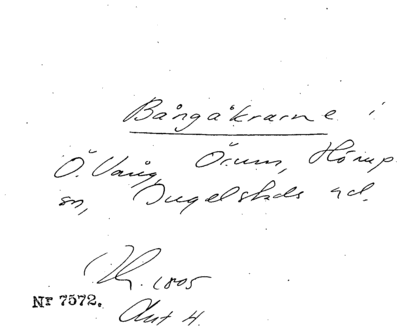 Bångåkrarne i
Ö. Vång, Örum, Hörup
sn, Ingelstads hd.
1805
Nr 7572.
Akt 4.